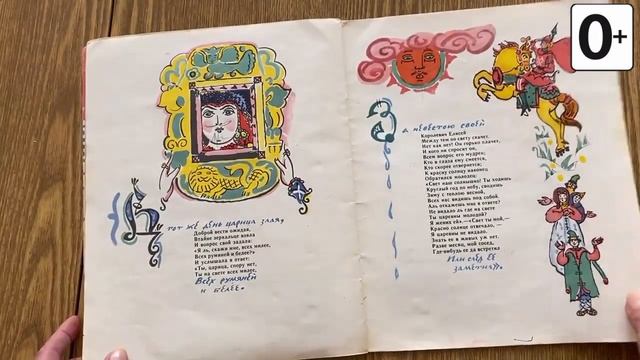 В тот же день царица злая,
Доброй вести ожидая,
Втайне зеркальце взяла
И вопрос свой задала:
«Я ль, скажи мне, всех милее,
Всех румяней и белее?»
И услышала в ответ:
«Ты, царица, спору нет,
Ты на свете всех милее,
Всех румяней
и белее».
За невестою своей
Королевич Елисей
Между тем по свету скачет.
Нет как нет! Он горько плачет,
И кого ни спросит он,
Всем вопрос его мудрен;
Кто в глаза ему смеется,
Кто скорее отвернется;
К красну солнцу наконец
Обратился молодец:
«Свет наш солнышко! Ты ходишь
Круглый год по небу, сводишь
Зиму с теплою весной,
Всех нас видишь под собой.
Аль откажешь мне в ответе?
Не видало ль где на свете
Ты царевны молодой?
Я жених ей».—«Свет ты мой,—
Красно солнце отвечало,—
Я царевны не видало.
Знать ее в живых уж нет.
Разве месяц, мой сосед,
Где-нибудь ее да встретил
Или след ее
заметил».
0+